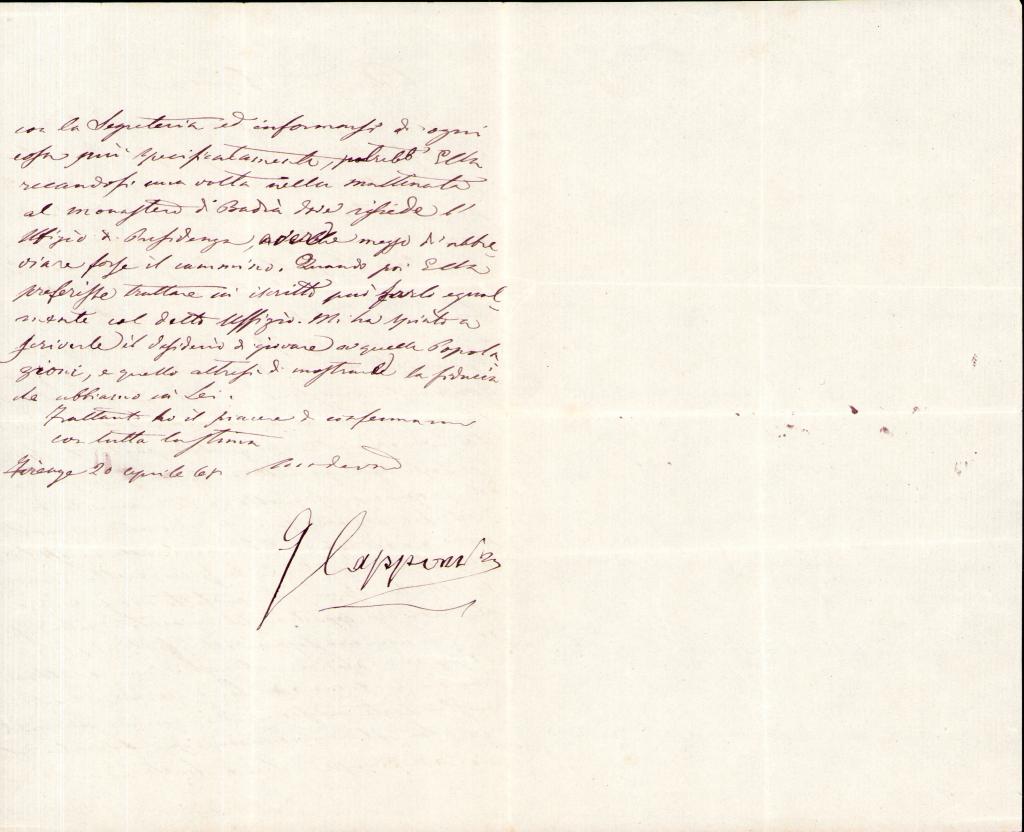 con la Segreteria ed informarsi di ogni
cosa più specificatamente, potrebb' Ella
recandosi una volta nella mattinata
al monastero di Badia dove risiede l'
Uffizio di Presidenza, avere mezzo d'abbre
viare forse il cammino. Quando poi Ella
preferisse trattare in iscritto può farlo egual-
mente col detto Uffizio. Mi ha spinto a
scriverle il desiderio di giovare a quelle Popola
zioni, e quello altresì di mostrarle la fiducia
che abbiamo in Lei.
Frattanto ho il piacere di confermarmi
con tutta la stima
Firenze 20 aprile 68
G Capponi